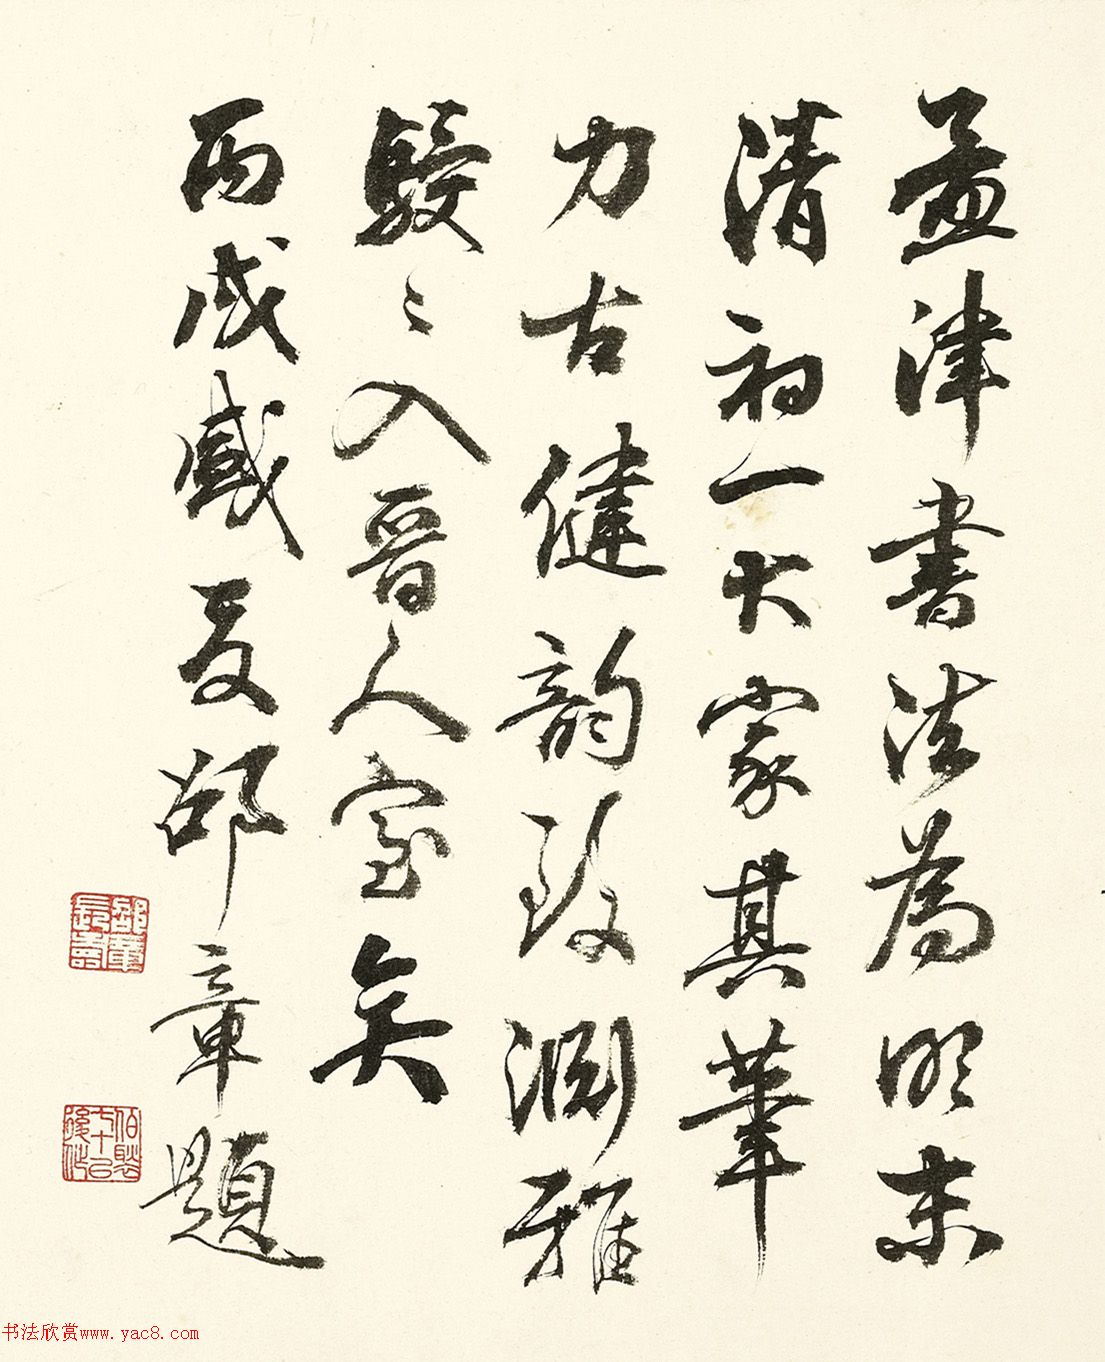 孟津書法為明末
清初一大家其筆
力古健韻致淵雅
駸〻入晉人室矣
丙戌盛夏邵章題
邵章長壽
伯褧七十已後作
书法欣赏www.yac8.com